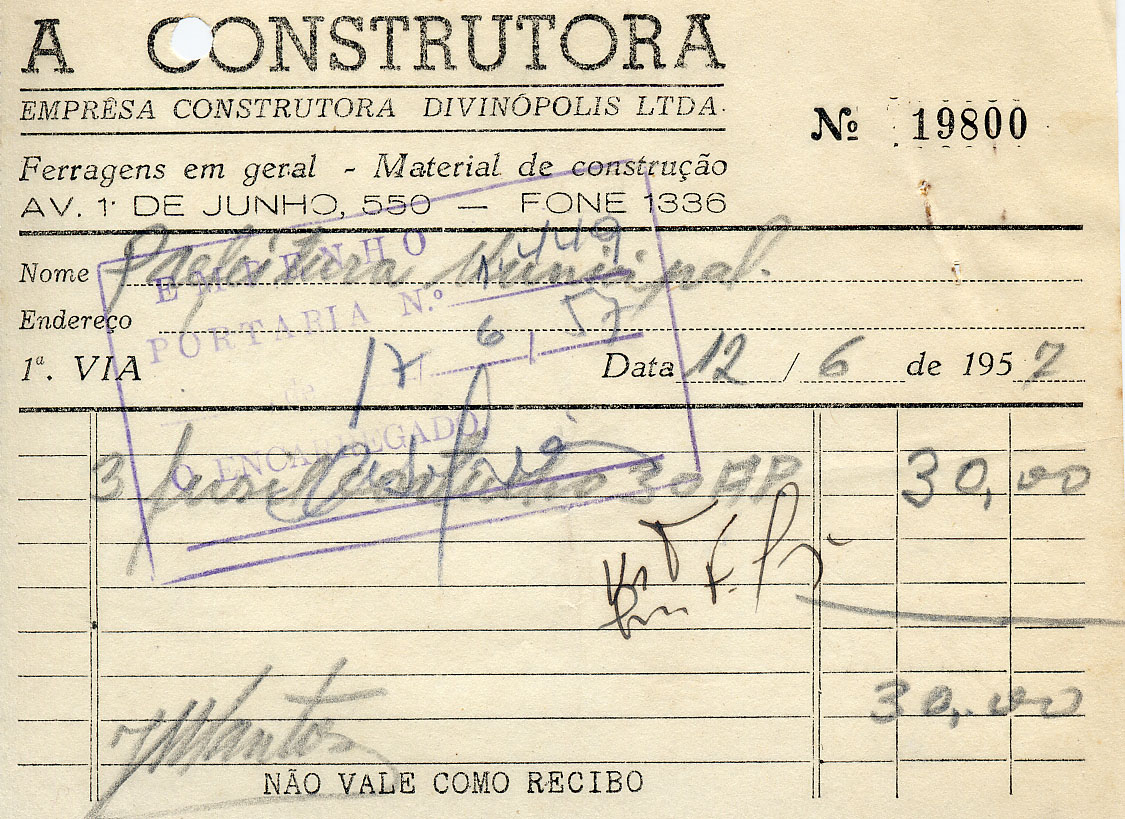 A CONSTRUTORA
EMPRÊSA CONSTRUTORA DIVINÓPOLIS LTDA.
Nº 19800
Ferragens em geral - Material de construção
AV. 1º DE JUNHO, 550 — FONE 1336
Nome Prefeitura Municipal.
EMPENHO
PORTARIA N.º
Endereço
17 / 6 / 57
1ª. VIA Data 12 / 6 de 1957
de
O ENCARREGADO,
3 30 AP 30,00
30,00
Santos
NÃO VALE COMO RECIBO